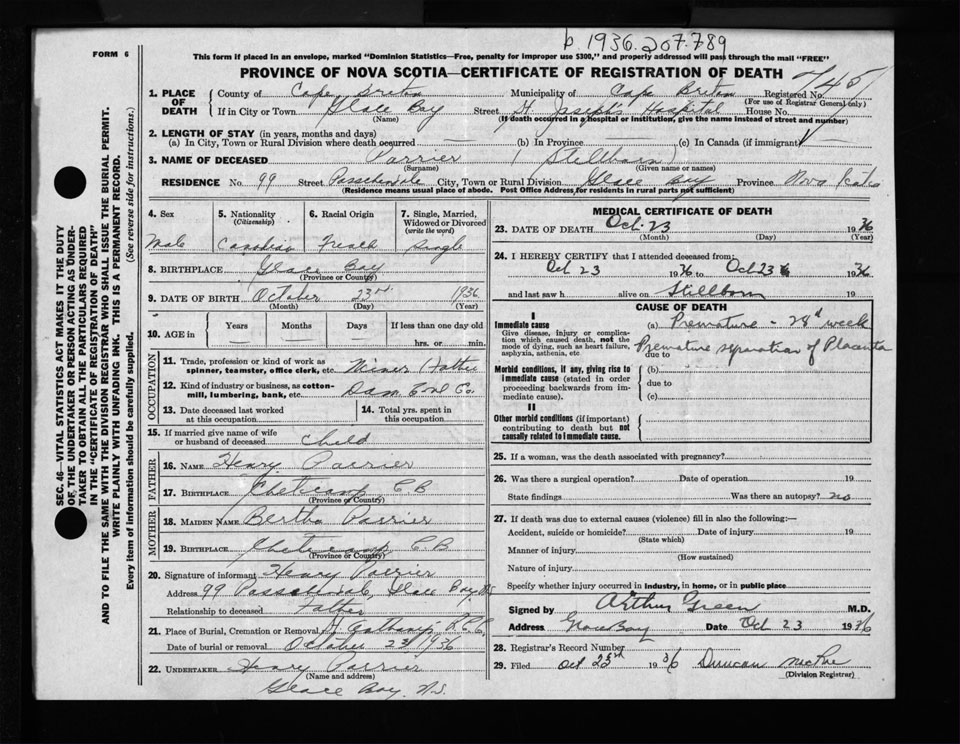 b 1936.207.789
FORM 6
This form if placed in an envelope, marked "Dominion Statistics—Free, penalty for improper use $300," and properly addressed will pass through the mail "FREE"
PROVINCE OF NOVA SCOTIA—CERTIFICATE OF REGISTRATION OF DEATH
1. PLACE OF DEATH
County of Cape Breton Municipality of Cape Breton Registered No. 745
(For use of Registrar General only)
If in City or Town Glace Bay Street St. Joseph's Hospital House No.
(Name) (If death occurred in a hospital or institution, give the name instead of street and number)
2. LENGTH OF STAY (in years, months and days)
(a) In City, Town or Rural Division where death occurred (b) In Province (c) In Canada (if immigrant)
3. NAME OF DECEASED Parrier (Stillborn)
(Surname) (Given name or names)
RESIDENCE No. 99 Street Passchendale City, Town or Rural Division Glace Bay Province Nova Scotia
(Residence means usual place of abode. Post Office Address for residents in rural parts not sufficient)
4. Sex 5. Nationality (Citizenship) 6. Racial Origin 7. Single, Married, Widowed or Divorced (write the word)
Male Canadian French Single
8. BIRTHPLACE Glace Bay
(Province or Country)
9. DATE OF BIRTH October 23rd 1936
(Month) (Day) (Year)
10. AGE in Years Months Days If less than one day old
hrs. or min.
OCCUPATION
11. Trade, profession or kind of work as spinner, teamster, office clerk, etc. Miner (Father
12. Kind of industry or business, as cotton-mill, lumbering, bank, etc. Dom Coal Co.
13. Date deceased last worked at this occupation
14. Total yrs. spent in this occupation
15. If married give name of wife or husband of deceased Child
FATHER
16. NAME Henry Parrier
17. BIRTHPLACE Cheticamp C B
(Province or Country)
MOTHER
18. MAIDEN NAME Bertha Parrier
19. BIRTHPLACE Cheticamp C.B
(Province or Country)
20. Signature of informant Henry Parrier
Address 99 Passchendale, Glace Bay NS
Relationship to deceased Father
21. Place of Burial, Cremation or Removal St.
Date of burial or removal October 23 1936
22. UNDERTAKER Henry Parrier
(Name and address)
Glace Bay, N.S.
MEDICAL CERTIFICATE OF DEATH
23. DATE OF DEATH Oct. 23 1936
(Month) (Day) (Year)
24. I HEREBY CERTIFY that I attended deceased from:
Oct 23 1936 to Oct 23 1936
and last saw h alive on Stillborn 19
CAUSE OF DEATH
I
Immediate cause
Give disease, injury or complication which caused death, not the mode of dying, such as heart failure, asphyxia, asthenia, etc.
(a) Premature - 28th week
Premature separation of Placenta
due to
Morbid conditions, if any, giving rise to immediate cause (stated in order proceeding backwards from immediate cause).
(b)
due to
(c)
II
Other morbid conditions (if important) contributing to death but not causally related to immediate cause.
25. If a woman, was the death associated with pregnancy?
26. Was there a surgical operation? Date of operation 19
State findings Was there an autopsy? no
27. If death was due to external causes (violence) fill in also the following:—
Accident, suicide or homicide? Date of injury 19
(State which)
Manner of injury
(How sustained)
Nature of injury
Specify whether injury occurred in industry, in home, or in public place
Signed by Arthur Green M.D.
Address Glace Bay Date Oct 23 1936
28. Registrar's Record Number
29. Filed Oct 1936 Duncan McRae
(Division Registrar)
SEC. 46—VITAL STATISTICS ACT MAKES IT THE DUTY
OF THE UNDERTAKER OR PERSON ACTING AS UNDER-
TAKER TO OBTAIN ALL THE PARTICULARS REQUIRED
IN THE "CERTIFICATE OF REGISTRATION OF DEATH"
AND TO FILE THE SAME WITH THE DIVISION REGISTRAR WHO SHALL ISSUE THE BURIAL PERMIT.
WRITE PLAINLY WITH UNFADING INK. THIS IS A PERMANENT RECORD.
Every item of information should be carefully supplied. (See reverse side for instructions.)